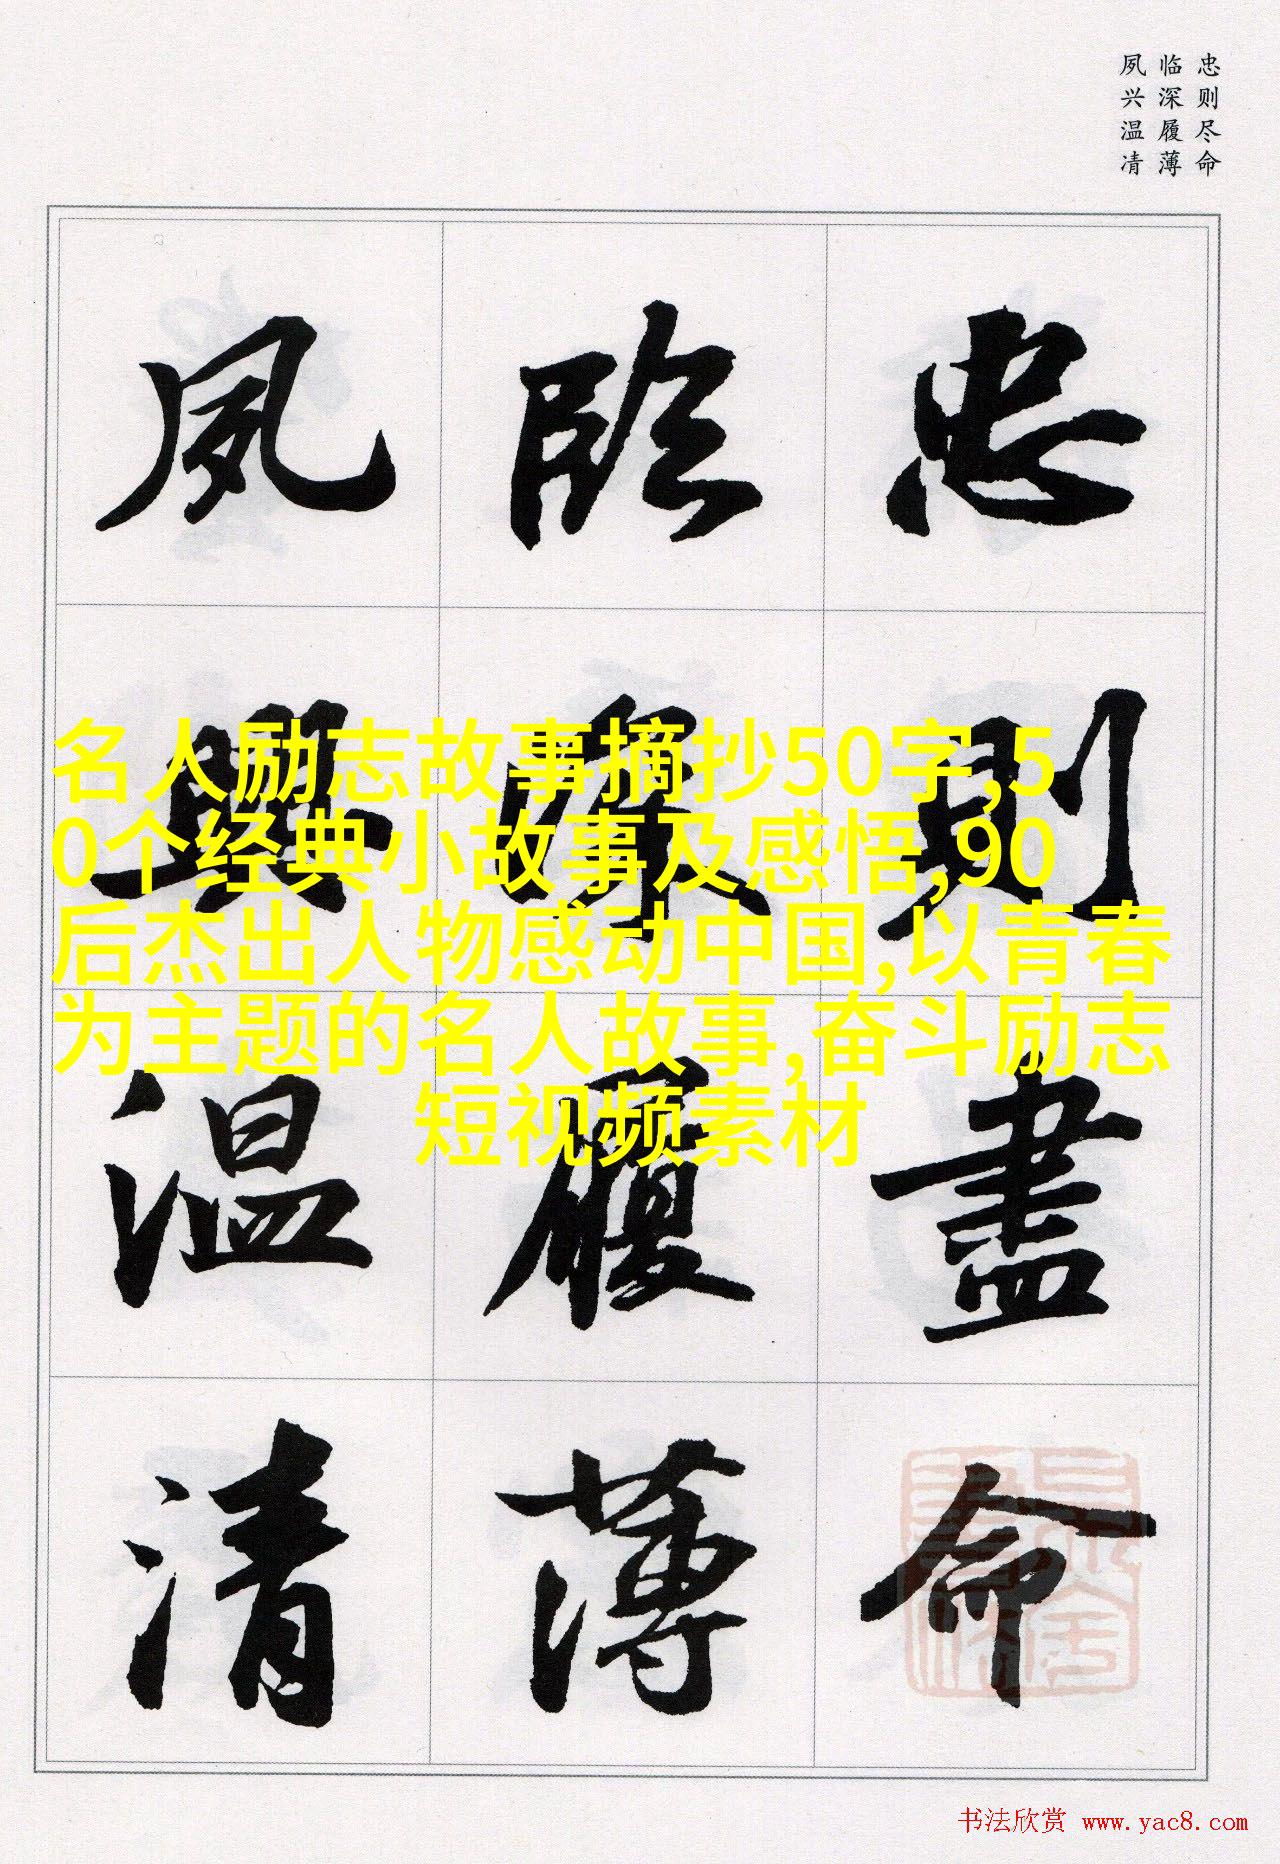 忠则尽命
临深履薄
夙兴温凊
忠則盡命
臨深履薄
夙興温清
名人励志故事摘抄50字,5
0个经典小故事及感悟,90
后杰出人物感动中国,以青春
为主题的名人故事,奋斗励志
短视频素材
书法欣赏 www.yac8.com